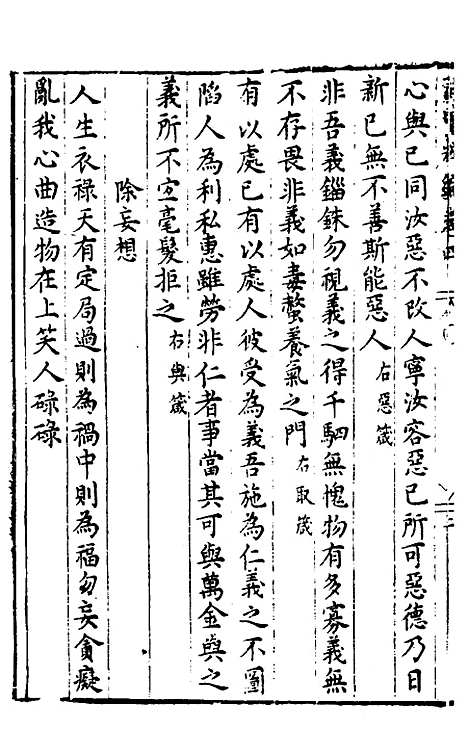 心與已同汝惡不改人寧汝容惡已所可惡德乃日
新已無不善斯能惡人右惡箴
非吾義錙銖勿視義之得千駟無愧物有多寡義無
不存畏非義如毒螫養氣之門右取箴
有以處已有以處人彼受為義吾施為仁義之不圖
陷人為利私惠雖勞非仁者事當其可與萬金與之
義所不宜毫髮拒之右與箴
除妄想
人生衣祿天有定局過則為禍中則為福勿妄貪癡
亂我心曲造物在上笑人碌碌